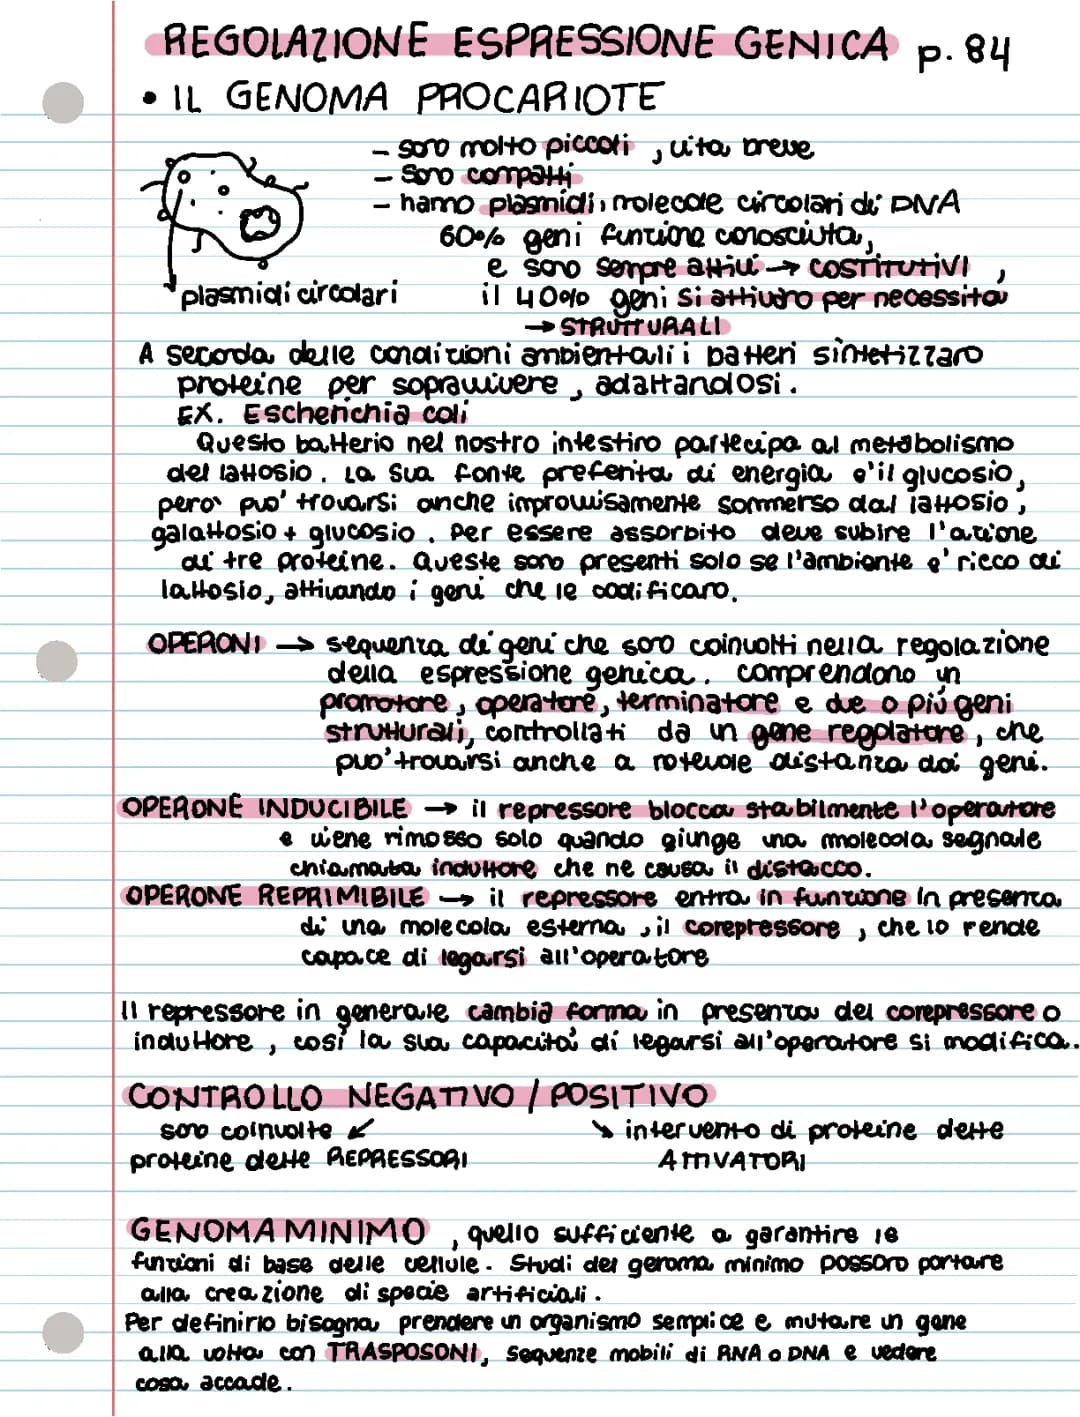 REGOLAZIONE ESPRESSIONE GENICA p. 84
• IL GENOMA PROCARIOTE
- sono molto piccoli, vita breve
- Sono compatti
- hanno plasmidi, molecole circolari di DNA
60% geni funzione conosciuta,
e sono sempre attivi → COSTITUTIVI,
plasmidi circolari
il 40% geni si attivano per necessità
→ STRUTTURALI
A seconda delle condizioni ambientali i batteri sintetizzano
proteine per sopravvivere, adattandosi.
EX. Escherichia coli
Questo batterio nel nostro intestino partecipa al metabolismo
del lattosio. La sua fonte preferita di energia e' il glucosio,
pero' puo' trovarsi anche improvvisamente sommerso dal lattosio,
galattosio + glucosio. Per essere assorbito deve subire l'azione
di tre proteine. Queste sono presenti solo se l'ambiente e' ricco di
lattosio, attivando i geni che le codificano.
OPERONI → sequenza di geni che sono coinvolti nella regolazione
della espressione genica. comprendono un
promotore, operatore, terminatore e due o più geni
strutturali, controllati da un gene regolatore, che
puo' trovarsi anche a notevole distanza dai geni.
OPERONE INDUCIBILE → il repressore blocca stabilmente l'operatore
e viene rimosso solo quando giunge una molecola segnale
chiamata induttore che ne causa il distacco.
OPERONE REPRIMIBILE → il repressore entra in funzione in presenza
di una molecola esterna, il corepressore, che lo rende
capace di legarsi all'operatore
Il repressore in generale cambia forma in presenza del corepressore o
induttore, così la sua capacità di legarsi all'operatore si modifica.
CONTROLLO NEGATIVO / POSITIVO
sono coinvolte ↙ ↘ intervento di proteine dette
proteine dette REPRESSORI ATTIVATORI
GENOMA MINIMO, quello sufficiente a garantire le
funzioni di base delle cellule. Studi del genoma minimo possono portare
alla creazione di specie artificiali.
Per definirlo bisogna prendere un organismo semplice e mutare un gene
alla volta con TRASPOSONI, sequenze mobili di RNA o DNA e vedere
cosa accade.